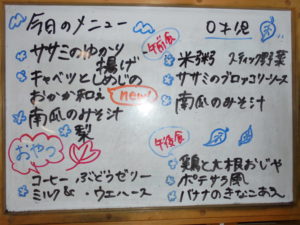 今日のメニュー
ササミのゆかり
揚げ
キャベツとしめじの
おかか和え new!
南瓜のみそ汁
梨
おやつ
コーヒー ぶどうゼリー
ミルク & ・ウエハース
0才児
午前食
米粥 スティック野菜
ササミのブロッコリーソース
南瓜のみそ汁
午後食
鶏と大根おじや
ポテサラ風
バナナのきなこあえ